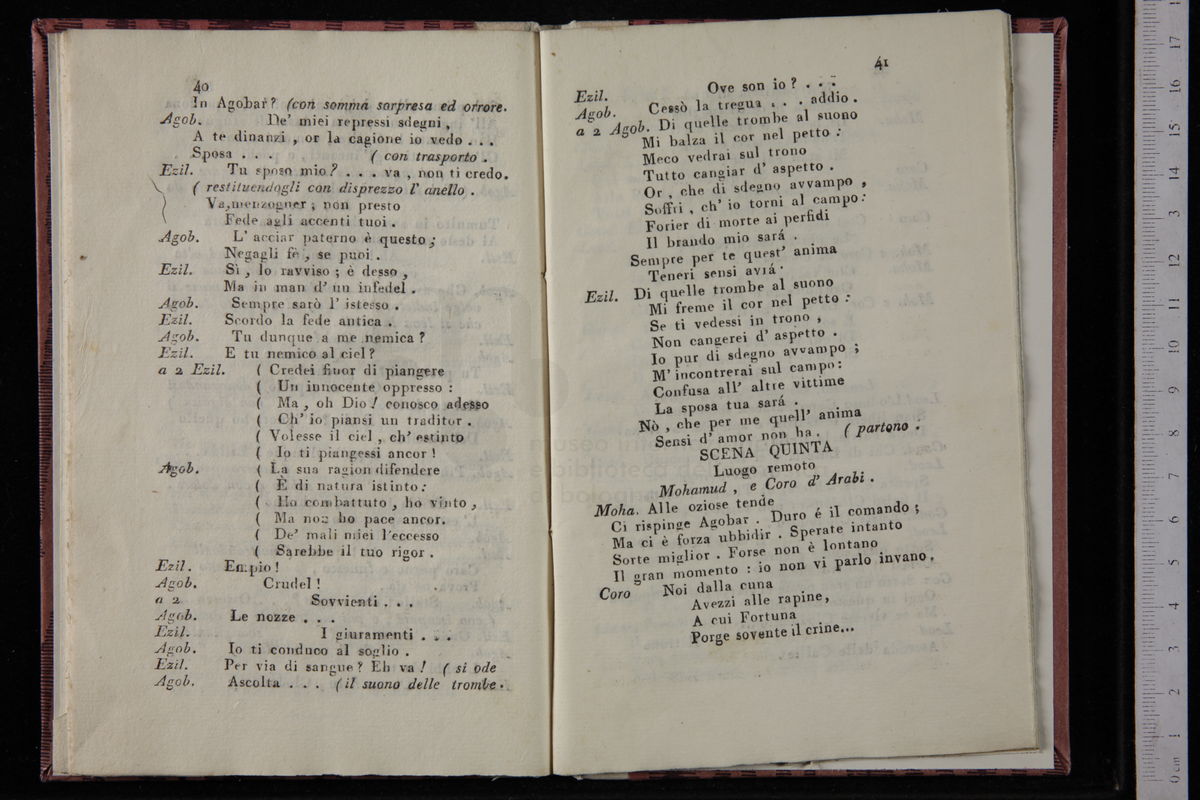 40
In Agobar? (con somma sorpresa ed orrore.
Agob. De' miei repressi sdegni,
A te dinanzi, or la cagione io vedo...
Sposa... (con trasporto.
Ezil. Tu sposo mio?... va, non ti credo.
(restituendogli con disprezzo l' anello.
Va, menzogner; non presto
Fede agli accenti tuoi.
Agob. L' acciar paterno è questo;
Negagli fè, se puoi.
Ezil. Sì, lo ravviso; è desso,
Ma in man d' un infedel.
Agob. Sempre sarò l' istesso.
Ezil. Scordo la fede antica.
Agob. Tu dunque a me nemica?
Ezil. E tu nemico al ciel?
a 2 Ezil. ( Credei finor di piangere
( Un innocente oppresso:
( Ma, oh Dio! conosco adesso
( Ch' io piansi un traditor.
( Volesse il ciel, ch' estinto
( Io ti piangessi ancor!
Agob. ( La sua ragion difendere
( È di natura istinto:
( Ho combattuto, ho vinto,
( Ma non ho pace ancor.
( De' mali miei l'eccesso
( Sarebbe il tuo rigor.
Ezil. Empio!
Agob. Crudel!
a 2 Sovvienti...
Agob. Le nozze...
Ezil. I giuramenti...
Agob. Io ti conduco al soglio.
Ezil. Per via di sangue? Eh va! (si ode
Agob. Ascolta... (il suono delle trombe.
41
Ezil. Ove son io?...
Agob. Cessò la tregua... addio.
a 2 Agob. Di quelle trombe al suono
Mi balza il cor nel petto:
Meco vedrai sul trono
Tutto cangiar d' aspetto.
Or, che di sdegno avvampo,
Soffri, ch' io torni al campo:
Forier di morte ai perfidi
Il brando mio sará.
Sempre per te quest' anima
Teneri sensi avrá.
Ezil. Di quelle trombe al suono
Mi freme il cor nel petto:
Se ti vedessi in trono,
Non cangerei d' aspetto.
Io pur di sdegno avvampo;
M' incontrerai sul campo:
Confusa all' altre vittime
La sposa tua sará.
Nò, che per me quell' anima
Sensi d' amor non ha. (partono.
SCENA QUINTA
Luogo remoto
Mohamud, e Coro d' Arabi.
Moha. Alle oziose tende
Ci rispinge Agobar. Duro é il comando;
Ma ci è forza ubbidir. Sperate intanto
Sorte miglior. Forse non è lontano
Il gran momento: io non vi parlo invano.
Coro Noi dalla cuna
Avezzi alle rapine,
A cui Fortuna
Porge sovente il crine...
0 cm 1 2 3 4 5 6 7 8 9 10 11 12 13 14 15 16 17